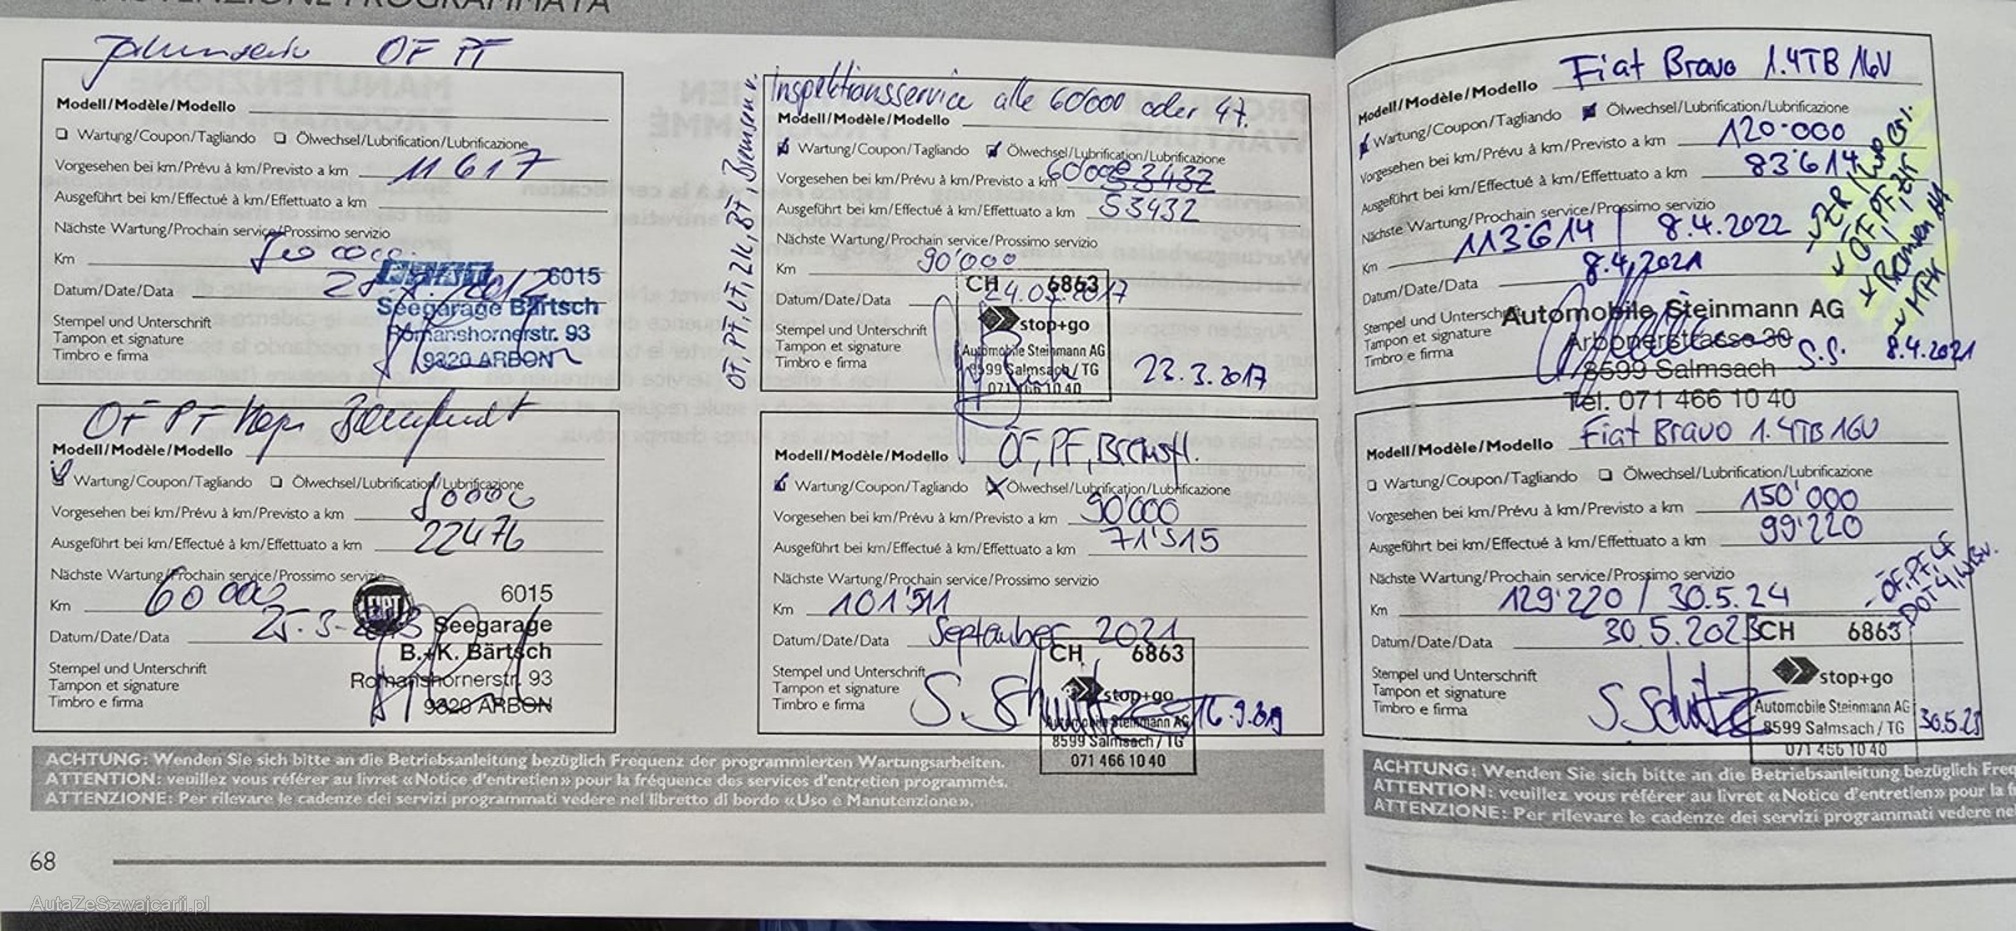 OF PF
Modell/Modèle/Modello
Wartung/Coupon/Tagliando Ölwechsel/Lubrification/Lubrificazione
Vorgesehen bei km/Prévu à km/Previsto a km 11 617
Ausgeführt bei km/Effectué à km/Effettuato a km
Nächste Wartung/Prochain service/Prossimo servizio
Km
Datum/Date/Data 2012
FIAT 6015
Seegarage Bärtsch
Romanshornerstr. 93
9320 ARBON
Stempel und Unterschrift
Tampon et signature
Timbro e firma
OF PF
Modell/Modèle/Modello
Wartung/Coupon/Tagliando Ölwechsel/Lubrification/Lubrificazione
Vorgesehen bei km/Prévu à km/Previsto a km
Ausgeführt bei km/Effectué à km/Effettuato a km 22476
Nächste Wartung/Prochain service/Prossimo servizio
Km 60 000
Datum/Date/Data 25-3-
Stempel und Unterschrift
Tampon et signature
Timbro e firma
FIAT 6015
Seegarage
B.+K. Bärtsch
Romanshornerstr. 93
9320 ARBON
Inspektionsservice alle 60'000 oder 4J.
Modell/Modèle/Modello
Wartung/Coupon/Tagliando Ölwechsel/Lubrification/Lubrificazione
Vorgesehen bei km/Prévu à km/Previsto a km 60000 53432
Ausgeführt bei km/Effectué à km/Effettuato a km 53432
Nächste Wartung/Prochain service/Prossimo servizio
Km 90'000
Datum/Date/Data 24.03.2017
Stempel und Unterschrift
Tampon et signature
Timbro e firma
CH 6863
stop+go
Automobile Steinmann AG
8599 Salmsach / TG
071 466 10 40
23.3.2017
ÖF, PF, Bremsfl.
Modell/Modèle/Modello
Wartung/Coupon/Tagliando Ölwechsel/Lubrification/Lubrificazione
Vorgesehen bei km/Prévu à km/Previsto a km 90'000
Ausgeführt bei km/Effectué à km/Effettuato a km 71'515
Nächste Wartung/Prochain service/Prossimo servizio
Km 101'511
Datum/Date/Data September 2021
Stempel und Unterschrift
Tampon et signature
Timbro e firma
CH 6863
stop+go
Automobile Steinmann AG
8599 Salmsach / TG
071 466 10 40
ACHTUNG: Wenden Sie sich bitte an die Betriebsanleitung bezüglich Frequenz der programmierten Wartungsarbeiten.
ATTENTION: veuillez vous référer au livret «Notice d'entretien» pour la fréquence des services d'entretien programmés.
ATTENZIONE: Per rilevare le cadenze dei servizi programmati vedere nel libretto di bordo «Uso e Manutenzione».
68
Fiat Bravo 1.4TB 16V
Modell/Modèle/Modello
Wartung/Coupon/Tagliando Ölwechsel/Lubrification/Lubrificazione
Vorgesehen bei km/Prévu à km/Previsto a km 120'000
Ausgeführt bei km/Effectué à km/Effettuato a km 83'614
Nächste Wartung/Prochain service/Prossimo servizio
Km 113'614 / 8.4.2022
Datum/Date/Data 8.4.2021
Stempel und Unterschrift
Tampon et signature
Timbro e firma
Automobile Steinmann AG
Arbonerstrasse 30
8599 Salmsach
Tel. 071 466 10 40
S.S. 8.4.2021
Modell/Modèle/Modello Fiat Bravo 1.4TB 16V
Wartung/Coupon/Tagliando Ölwechsel/Lubrification/Lubrificazione
Vorgesehen bei km/Prévu à km/Previsto a km 150'000
Ausgeführt bei km/Effectué à km/Effettuato a km 99'220
Nächste Wartung/Prochain service/Prossimo servizio
Km 129'220 / 30.5.24
Datum/Date/Data 30.5.2023
- ÖF, PF, LF
DOT4
Stempel und Unterschrift
Tampon et signature
Timbro e firma
CH 6863
stop+go
Automobile Steinmann AG
8599 Salmsach / TG
071 466 10 40
30.5.23
ACHTUNG: Wenden Sie sich bitte an die Betriebsanleitung bezüglich Freq
ATTENTION: veuillez vous référer au livret «Notice d'entretien» pour la f
ATTENZIONE: Per rilevare le cadenze dei servizi programmati vedere ne
AutaZeSzwajcarii.pl